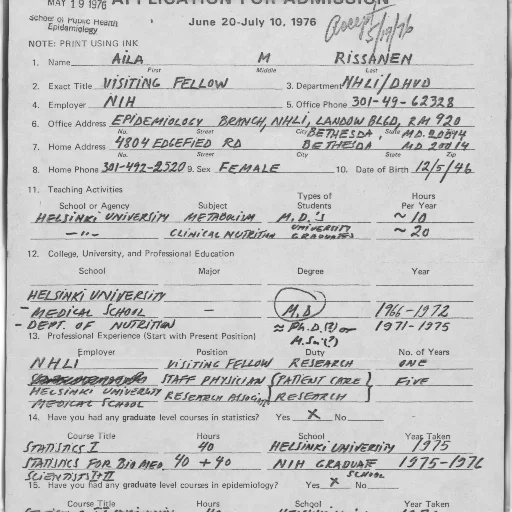 MAY 19 1976 APPLICATION FOR ADMISSION
School of Public Health
Epidemiology
June 20-July 10, 1976
Accept 5/19/76
NOTE: PRINT USING INK
1. Name AILA M RISSANEN
First Middle Last
2. Exact Title VISITING FELLOW 3. Department NHLI/DHVD
4. Employer NIH 5. Office Phone 301-49-62328
6. Office Address EPIDEMIOLOGY BRANCH, NHLI, LANDOW BLGD, RM 920
No. Street City BETHESDA, State MD. 20014
7. Home Address 4804 EDGEFIELD RD BETHESDA MD 20014
No. Street City State Zip
8. Home Phone 301-492-2520 9. Sex FEMALE 10. Date of Birth 12/5/46
11. Teaching Activities
School or Agency Subject Types of Students Hours Per Year
HELSINKI UNIVERSITY METABOLISM M.D.'S ~ 10
-"- CLINICAL NUTRITION UNIVERSITY GRADUATES ~ 20
12. College, University, and Professional Education
School Major Degree Year
HELSINKI UNIVERSITY
- MEDICAL SCHOOL - M.D 1966-1972
- DEPT. OF NUTRITION ≈ Ph.D.(?) or 1971-1975
M.Sc(?)
13. Professional Experience (Start with Present Position)
Employer Position Duty No. of Years
NHLI VISITING FELLOW RESEARCH ONE
STAFF PHYSICIAN {PATIENT CARE} FIVE
HELSINKI UNIVERSITY RESEARCH ASSOC. RESEARCH
MEDICAL SCHOOL
14. Have you had any graduate level courses in statistics? Yes X No
Course Title Hours School Year Taken
STATISTICS I 40 HELSINKI UNIVERSITY 1975
STATISTICS FOR BIOMED. 40 + 40 NIH GRADUATE SCHOOL 1975-1976
SCIENTISTS I+II
15. Have you had any graduate level courses in epidemiology? Yes X No
Course Title Hours School Year Taken